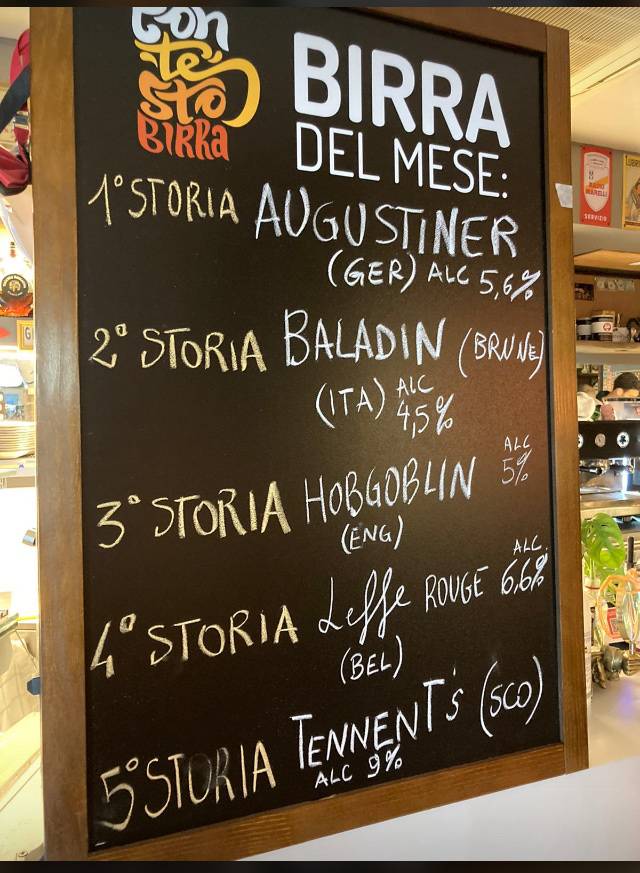 con
te
sto
BIRRA
BIRRA
DEL MESE:
1° STORIA AUGUSTINER
(GER) ALC 5,6%
2° STORIA BALADIN (BRUNE)
(ITA) ALC 4,5%
3° STORIA HOBGOBLIN ALC 5%
(ENG)
4° STORIA Leffe ROUGE ALC. 6,6%
(BEL)
5° STORIA TENNENT's (SCO)
ALC 9%
RADIO
MARELLI
SERVIZIO